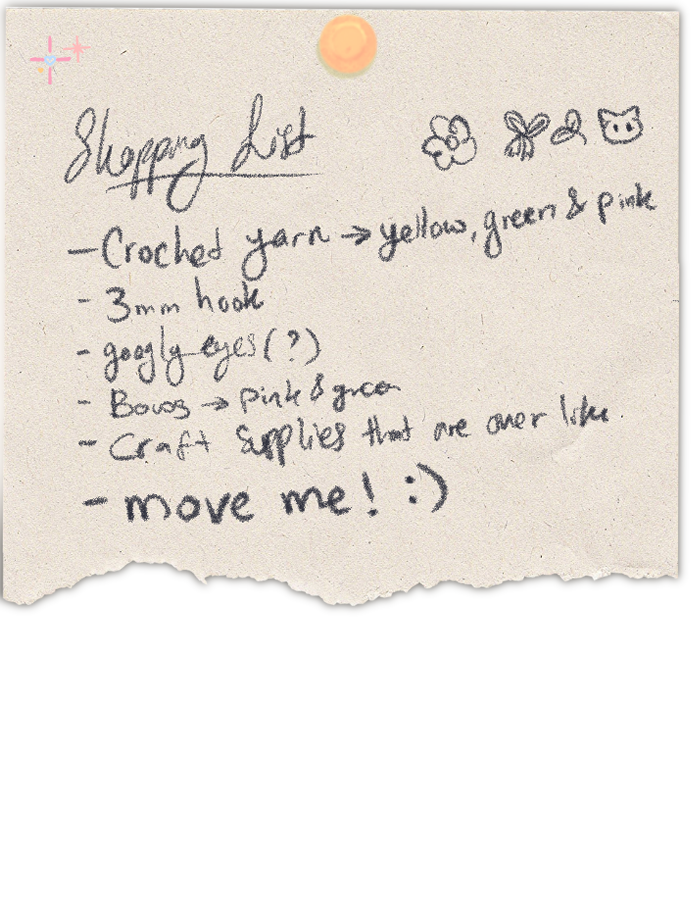 Shopping List
- Crochet yarn → yellow, green & pink
- 3mm hook
- googly eyes (?)
- Bows → pink & green
- Craft Supplies that are over like
- move me! :)